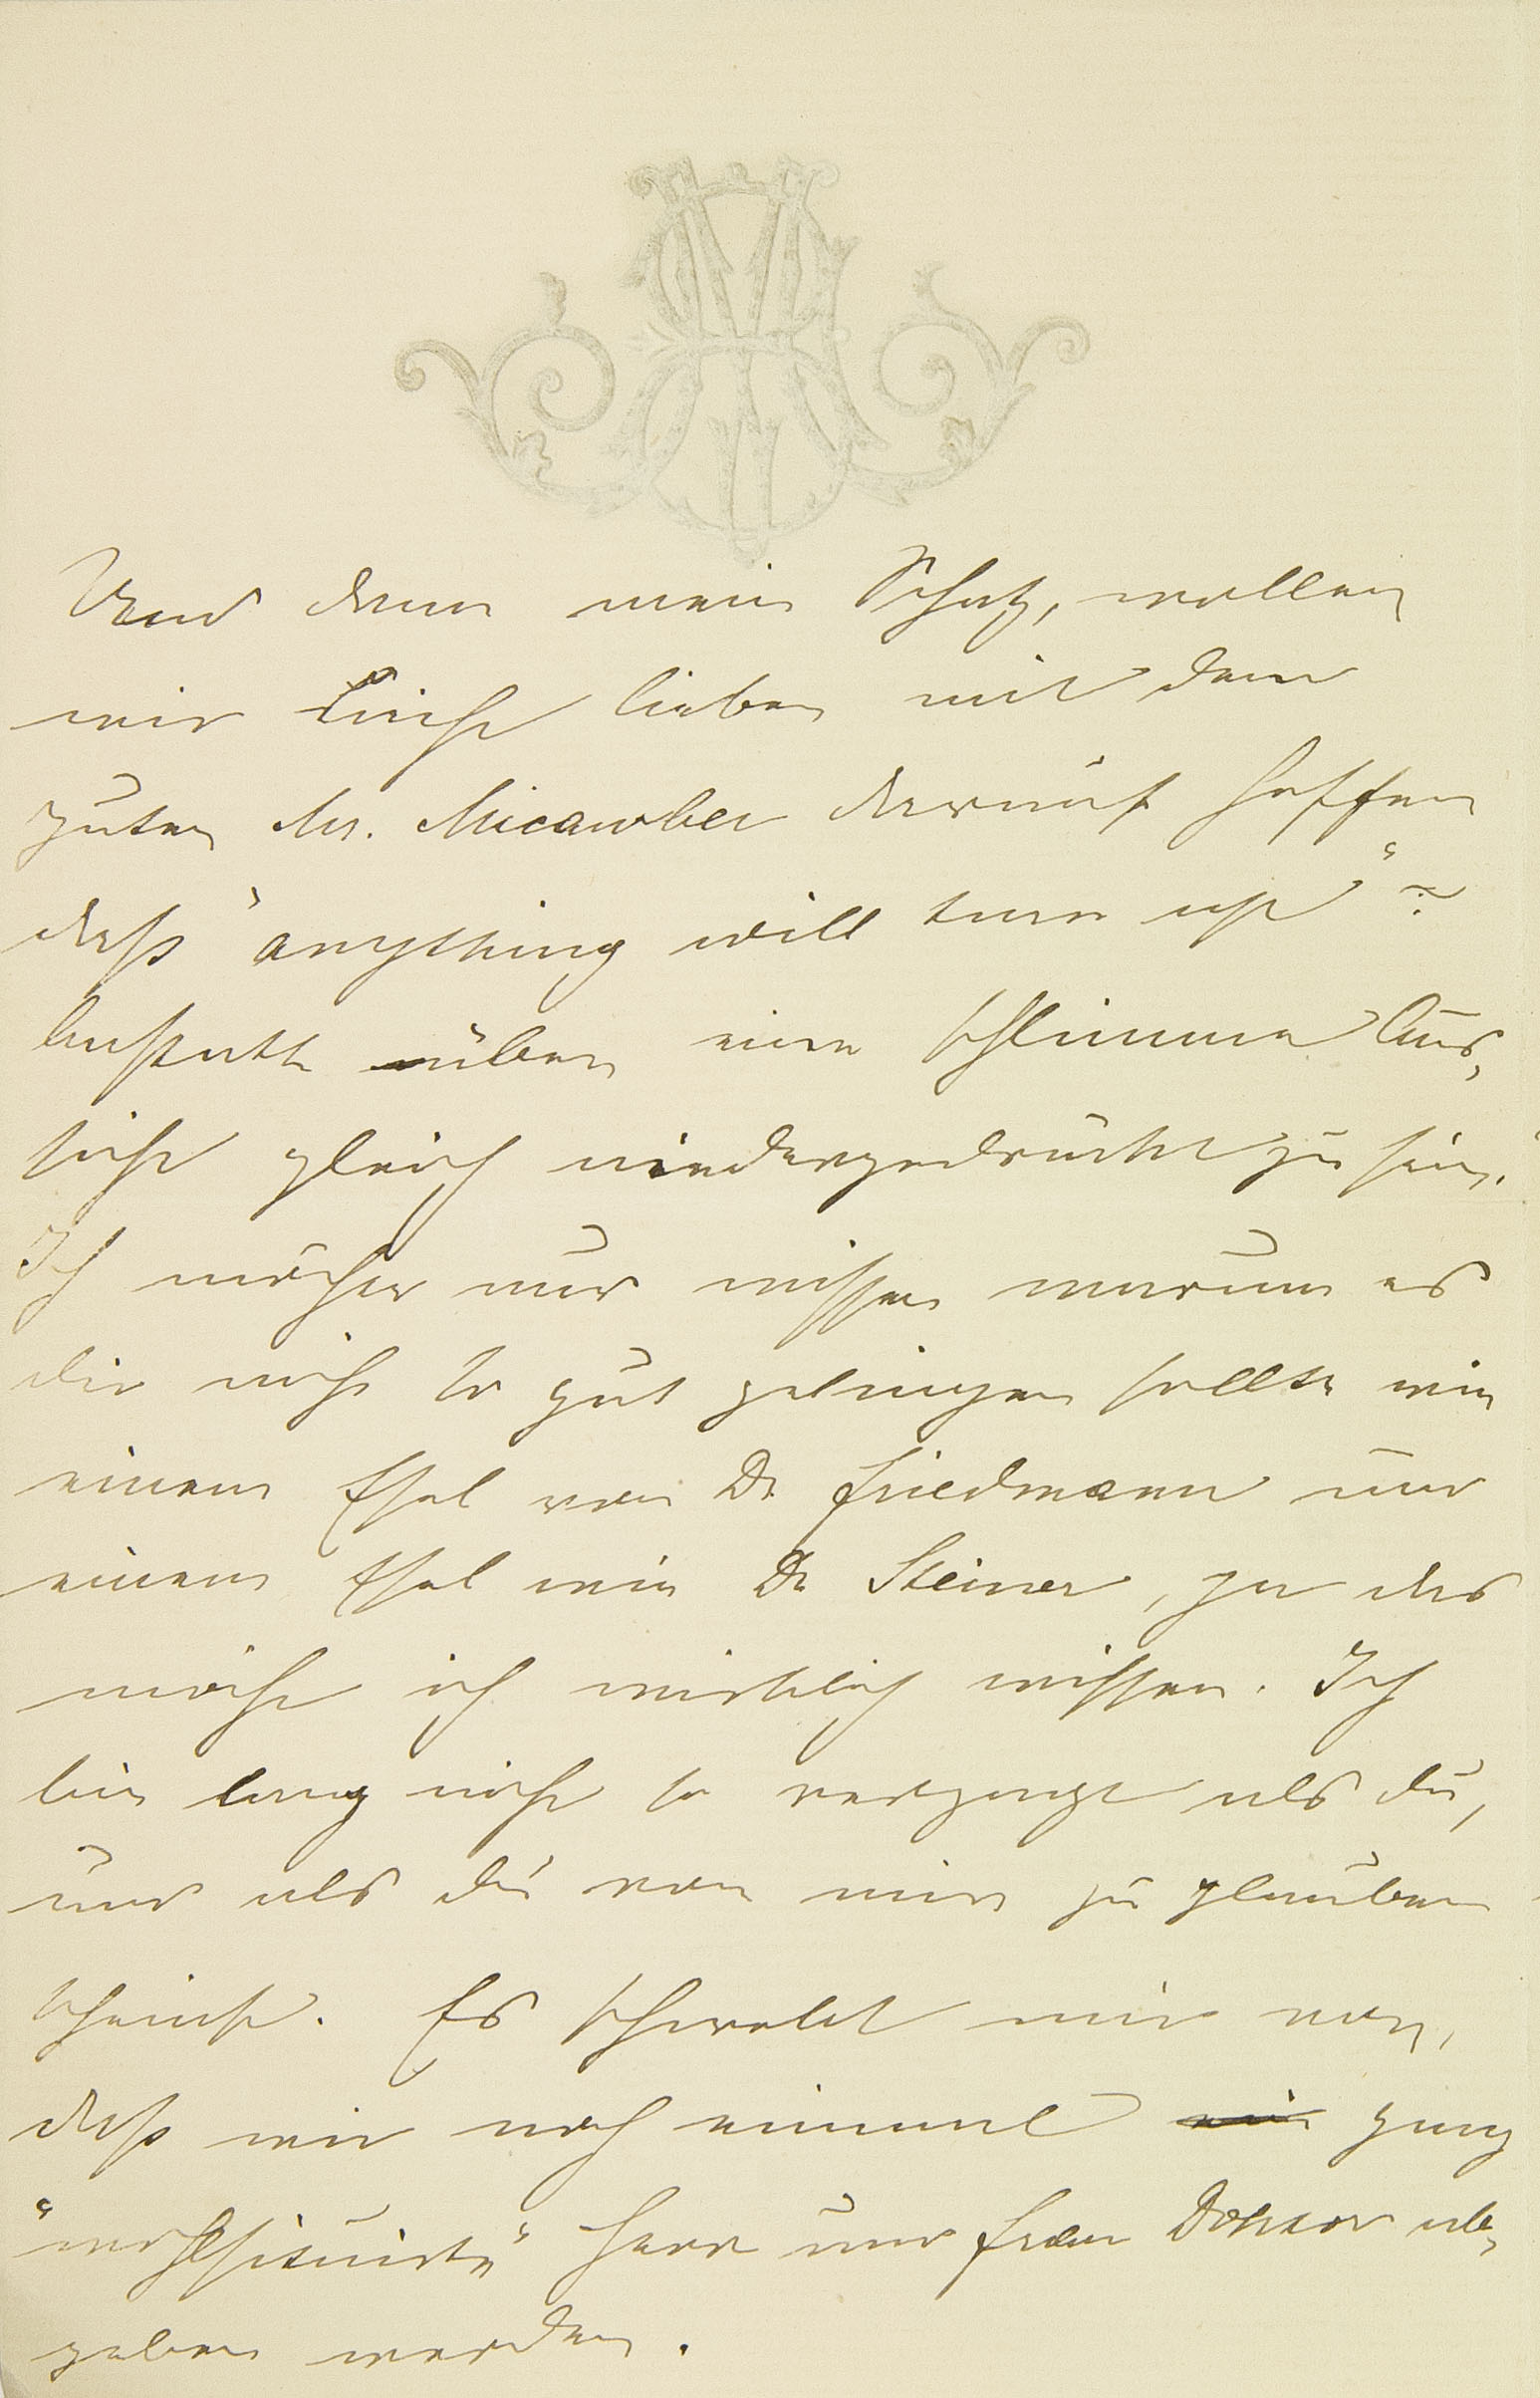 Und dann mein Schatz, wollen
wir nicht lieber mit dem
guten Mr. Micawber darauf hoffen
daß "anything will turn up"?
anstatt über eine schlimme Aus-
sicht gleich niedergedrückt zu sein.
Ich möchte nur wissen warum es
dir nicht so gut gelingen sollte wie
einem Esel von Dr Friedmann und
einem Esel wie Dr Steiner, ja das
möcht ich wirklich wissen. Ich
bin lang nicht so verzagt als du,
und als du von mir zu glauben
scheinst. Es schwebt mir vor,
daß wir noch einmal ein ganz
"wohlsituirte" Herr und Frau Doktor ab-
geben werden.